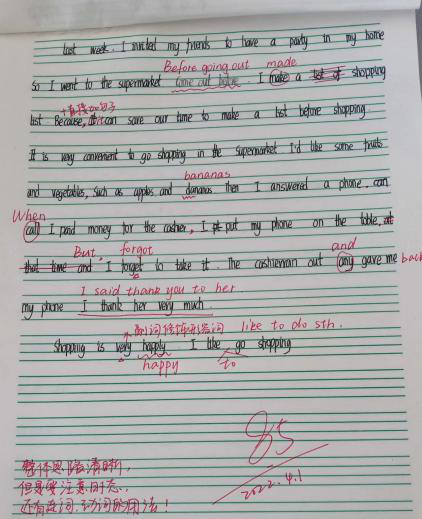 last week. I invited my friends to have a party in my home
Before going out made
So I went to the supermarket come out before. I make a list of shopping
+直接加句子
list. Because, it can save our time to make a list before shopping
It is very convenient to go shopping in the supermarket I'd like some fruits
bananas
and vegetables, such as apples and dananas then I answered a phone. can
When
call I paid money for the cashier, I put my phone on the table. at
But, forgot and
that time and I forget to take it. The cashierman out any gave me back
I said thank you to her.
my phone I thank her very much.
副词修饰形容词 like to do sth.
Shopping is very happly. I like go shopping
happy to
85
2022.4.1
整体思路清晰,
但是要注意时态,
还有连词、动词的用法!